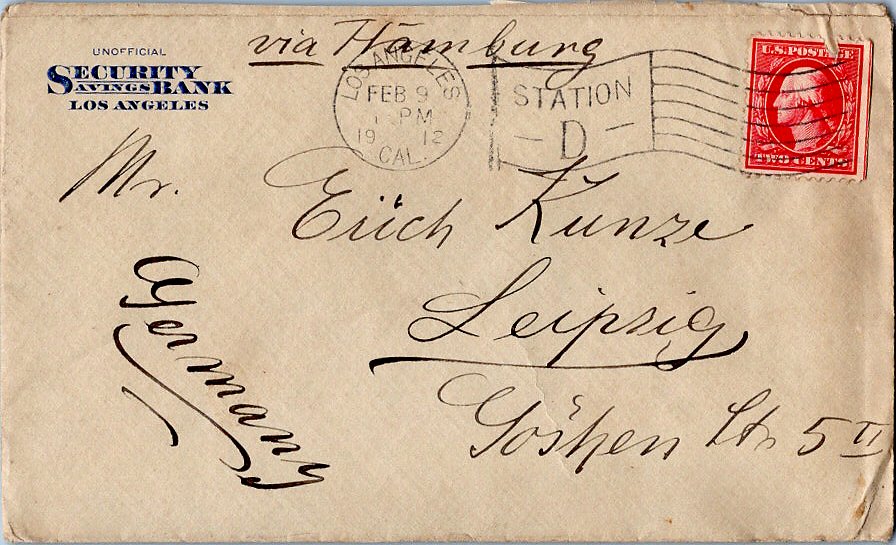 via Hamburg
UNOFFICIAL
SECURITY
SAVINGS BANK
LOS ANGELES
LOS ANGELES
FEB 9
PM
1912
CAL.
STATION
D
U.S. POSTAGE
TWO CENTS
Mr. Erich Kunze
Leipzig
Göshen Str 5 II
Germany